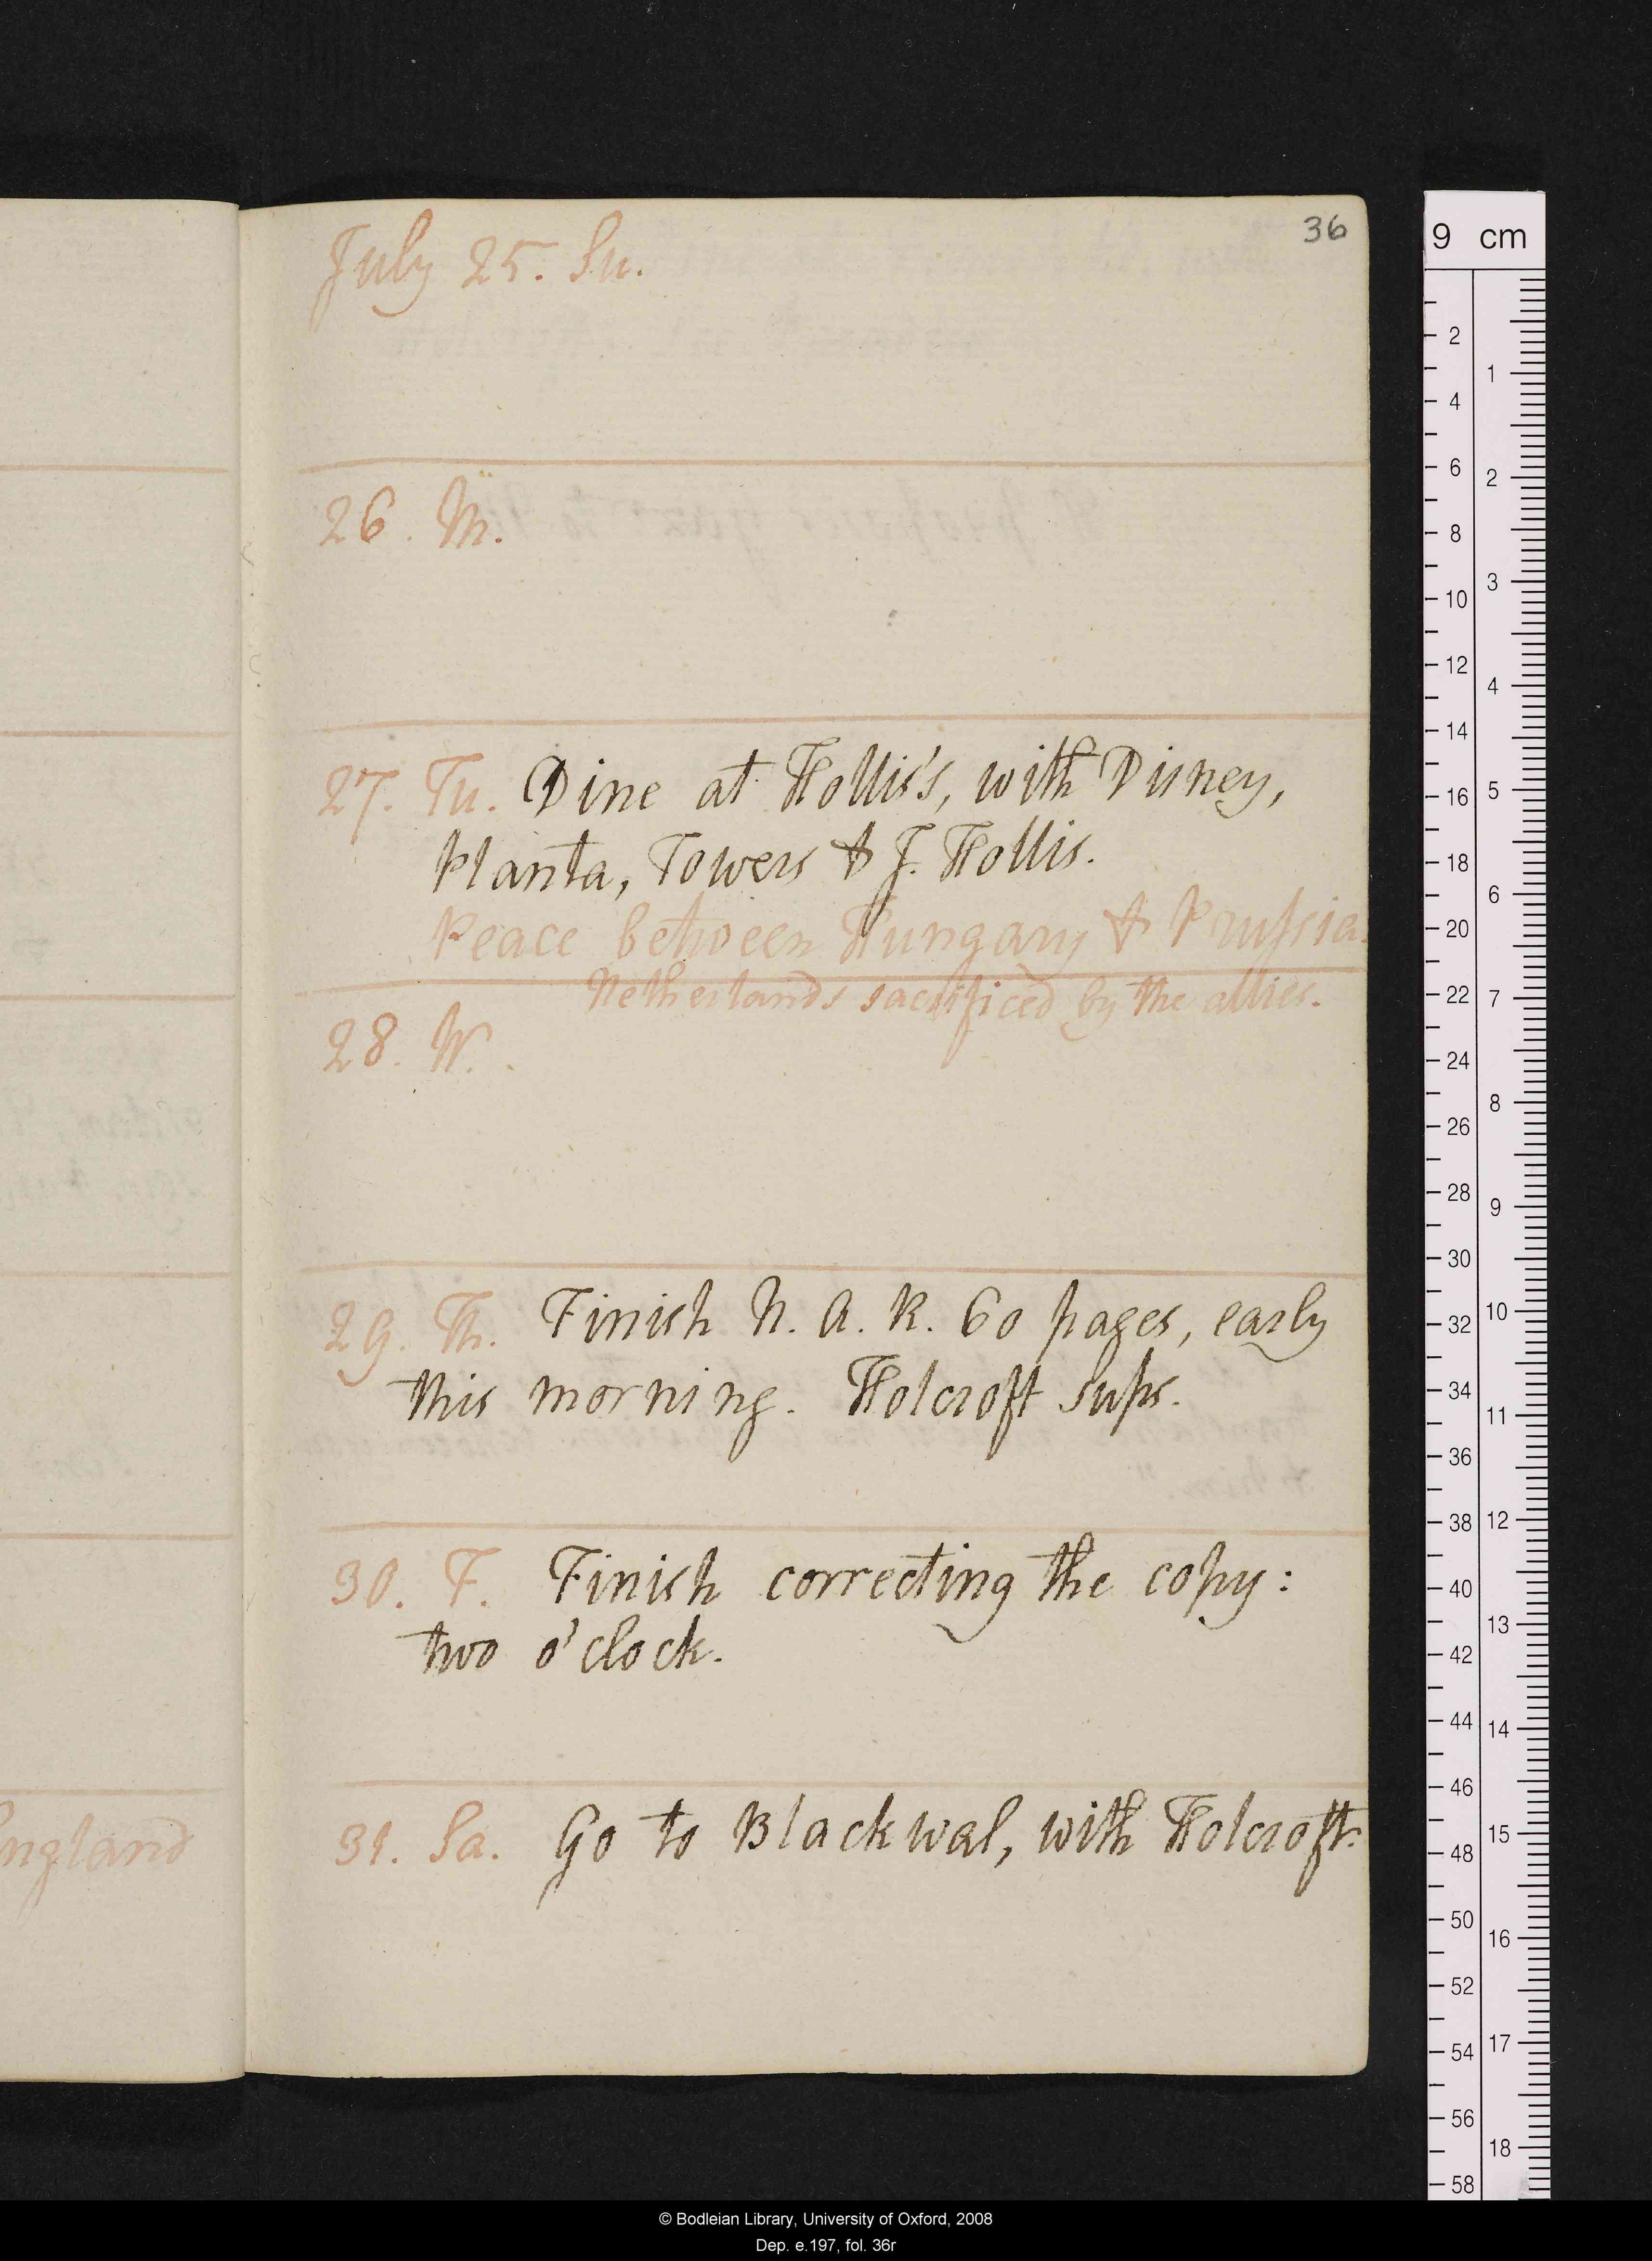 36
July 25. Su.
26. M.
27. Tu. Dine at Hollis's, with Disney,
Planta, Towers & J. Hollis.
Peace between Hungary & Prussia.
Netherlands sacrificed by the allies.
28. W.
29. Th. Finish N. A. R. 60 pages, early
this morning. Holcroft sups.
30. F. Finish correcting the copy:
two o'clock.
ngland
31. Sa. Go to Blackwal, with Holcroft.
9 cm
2
4
6
8
10
12
14
16
18
20
22
24
26
28
30
32
34
36
38
40
42
44
46
48
50
52
54
56
58
1
2
3
4
5
6
7
8
9
10
11
12
13
14
15
16
17
18
© Bodleian Library, University of Oxford, 2008
Dep. e.197, fol. 36r